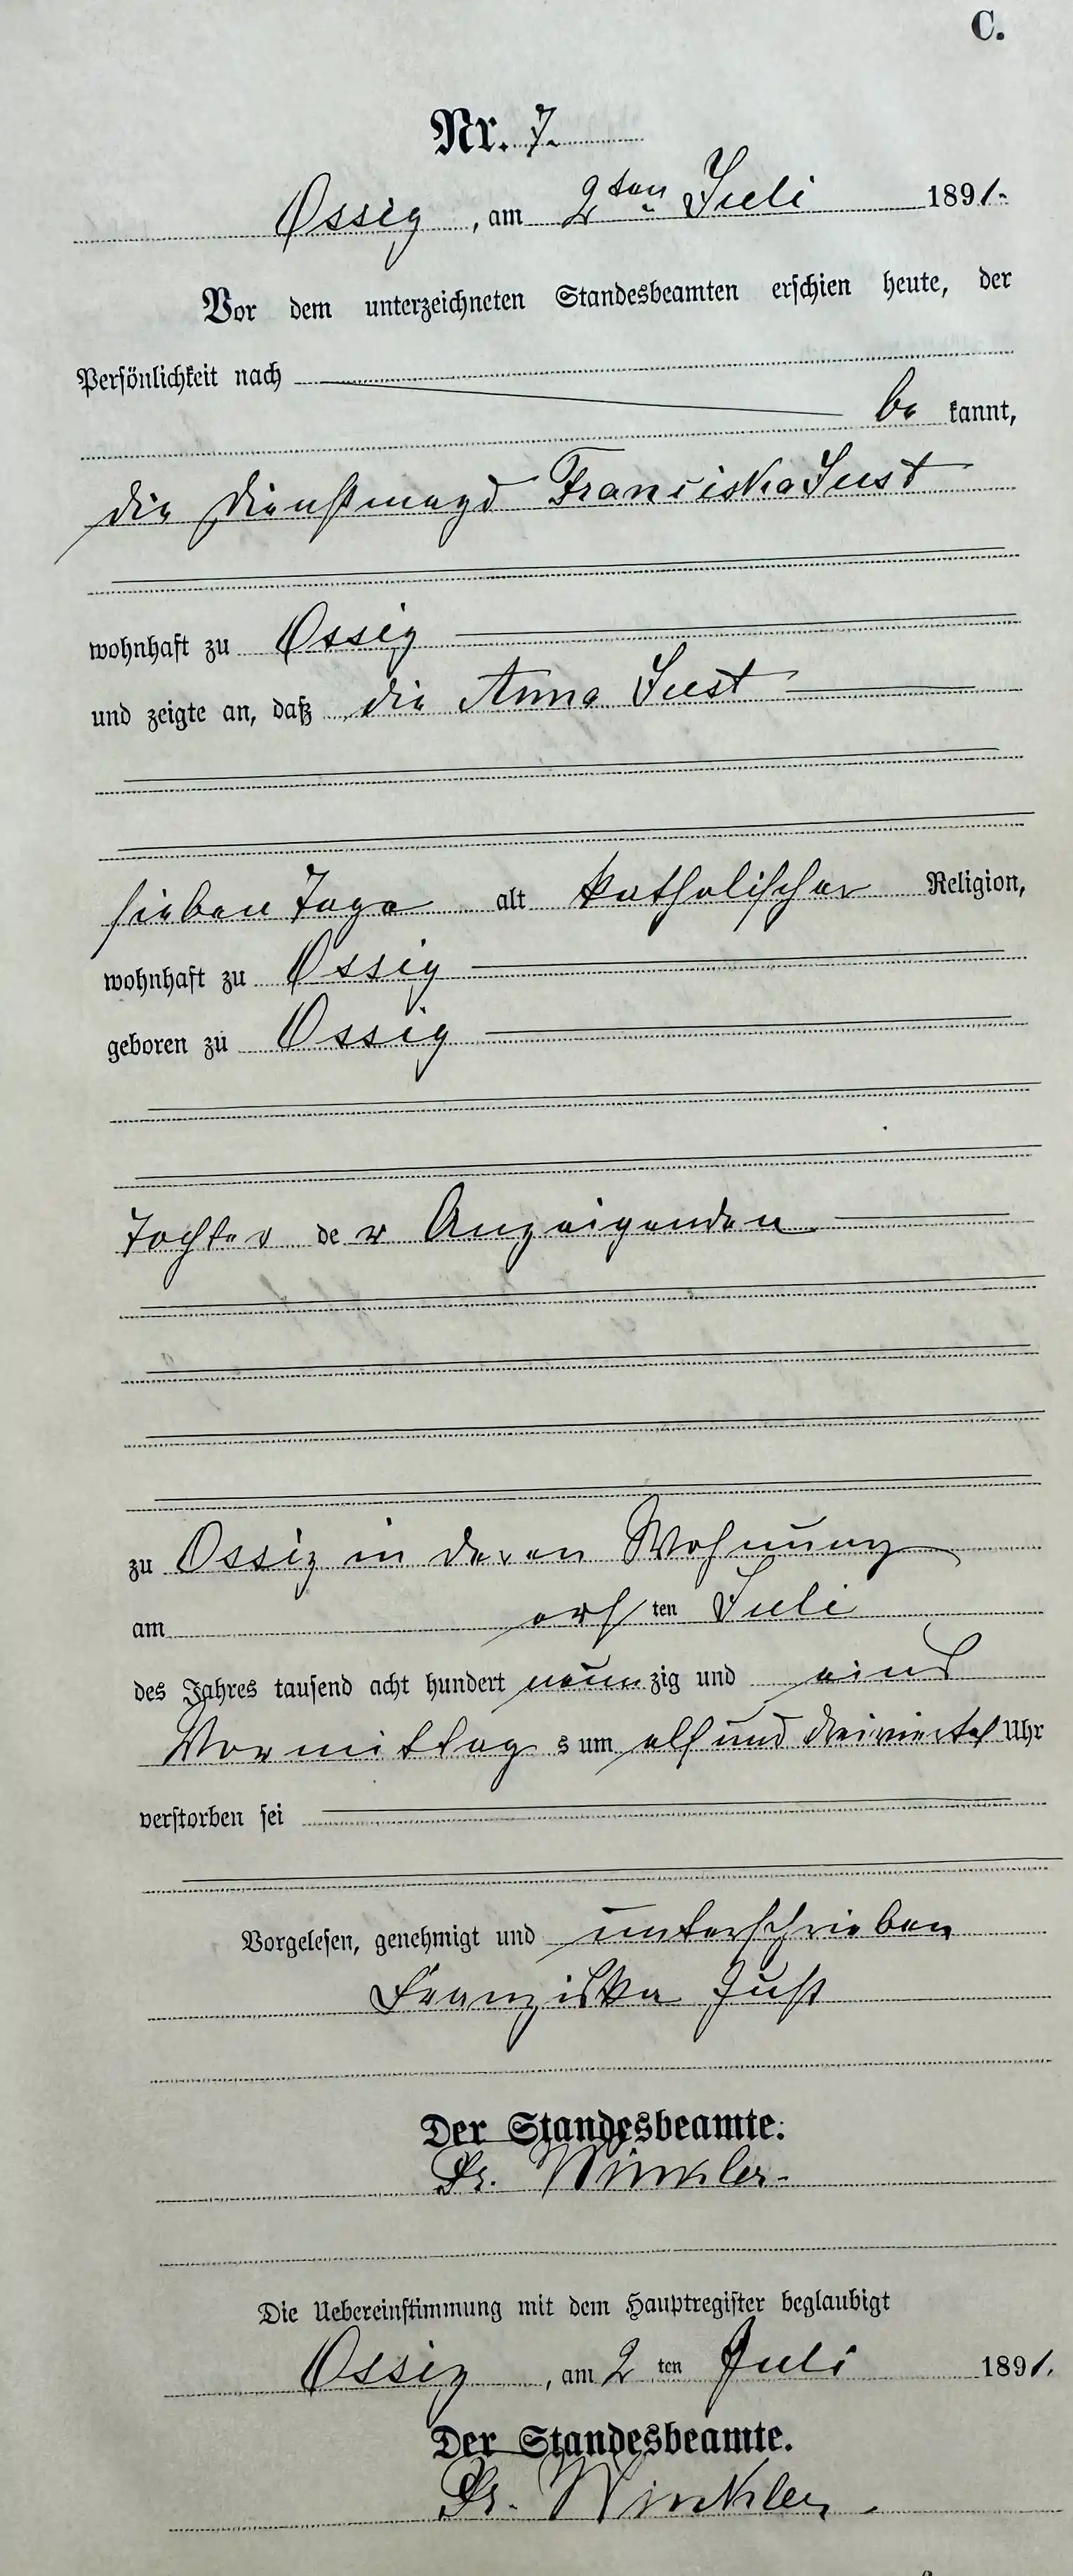 C.
Nr. 7.
Ossig, am 2ten Juli 1891.
Vor dem unterzeichneten Standesbeamten erschien heute, der
Persönlichkeit nach
be kannt,
die Dienstmagd Franciska Just
wohnhaft zu Ossig
und zeigte an, daß die Anna Just
sieben Tage alt katholischer Religion,
wohnhaft zu Ossig
geboren zu Ossig
Tochter der Anzeigenden
zu Ossig in deren Wohnung
am ersten Juli
des Jahres tausend acht hundert neunzig und eins
Vormittags um elf und dreiviertel Uhr
verstorben sei
Vorgelesen, genehmigt und unterschrieben
Franziska Just
Der Standesbeamte.
Dr. Winkler.
Die Uebereinstimmung mit dem Hauptregister beglaubigt
Ossig, am 2ten Juli 1891.
Der Standesbeamte.
Dr. Winkler.